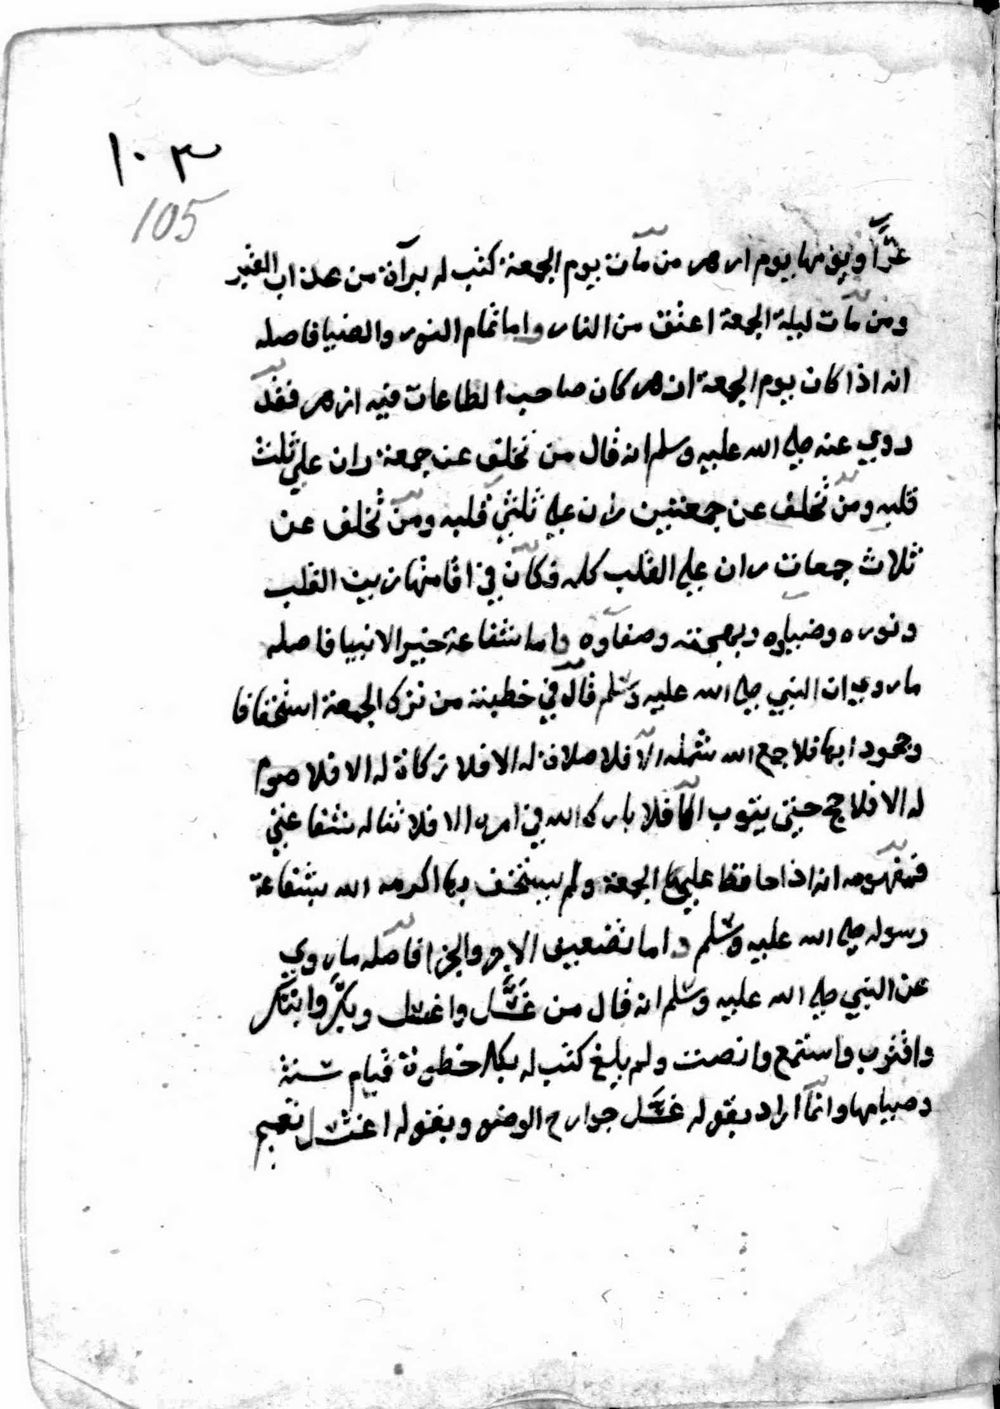 ١٠٣
105
غرّاً ويومها يوم ازهر من مات يوم الجمعة كتب له براة من عذاب القبر
ومن مات ليلة الجمعة اعتق من النار واما تمام النور والضيا فاصله
انه اذا كان يوم الجمعة ازهر كان صاحب الطاعات فيه ازهر فقد
روي عنه صلى الله عليه وسلم انه قال من تخلف عن جمعة ران علي ثلث
قلبه ومن تخلف عن جمعتين ران على ثلثي قلبه ومن تخلف عن
ثلاث جمعات ران علي القلب كله فكان في اقامتها زيت القلب
ونوره وضياوه وبهجته وصفاوه واما شفاعة خير الانبيا فاصله
ماروي ان النبي صلى الله عليه وسلم قال في خطبته من ترك الجمعة استخفافا
وجحودا بها فلا جمع الله شمله الا فلا صلاة له الا فلا زكاة له الا فلا صوم
له الا فلا حج حتى يتوب الا فلا بارك الله في امره الا فلا تناله شفاعتي
فمفهومه انه اذا حافظ علي الجمعة ولم يستخف بها اكرمه الله بشفاعة
رسوله صلى الله عليه وسلم واما تضعيف الاجر والجزا فاصله ماروي
عن النبي صلى الله عليه وسلم انه قال من غسّل واغتسل وبكّر وابتكر
واقترب واستمع وانصت ولم يلغ كتب له بكل خطوة قيام سنة
وصيامها وانما اراد بقوله غسّل جوارح الوضو وبقوله اغتسل تعميم